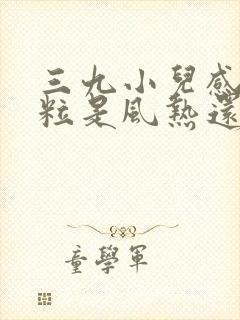 三九小兒感
粒是風熱還
童學軍